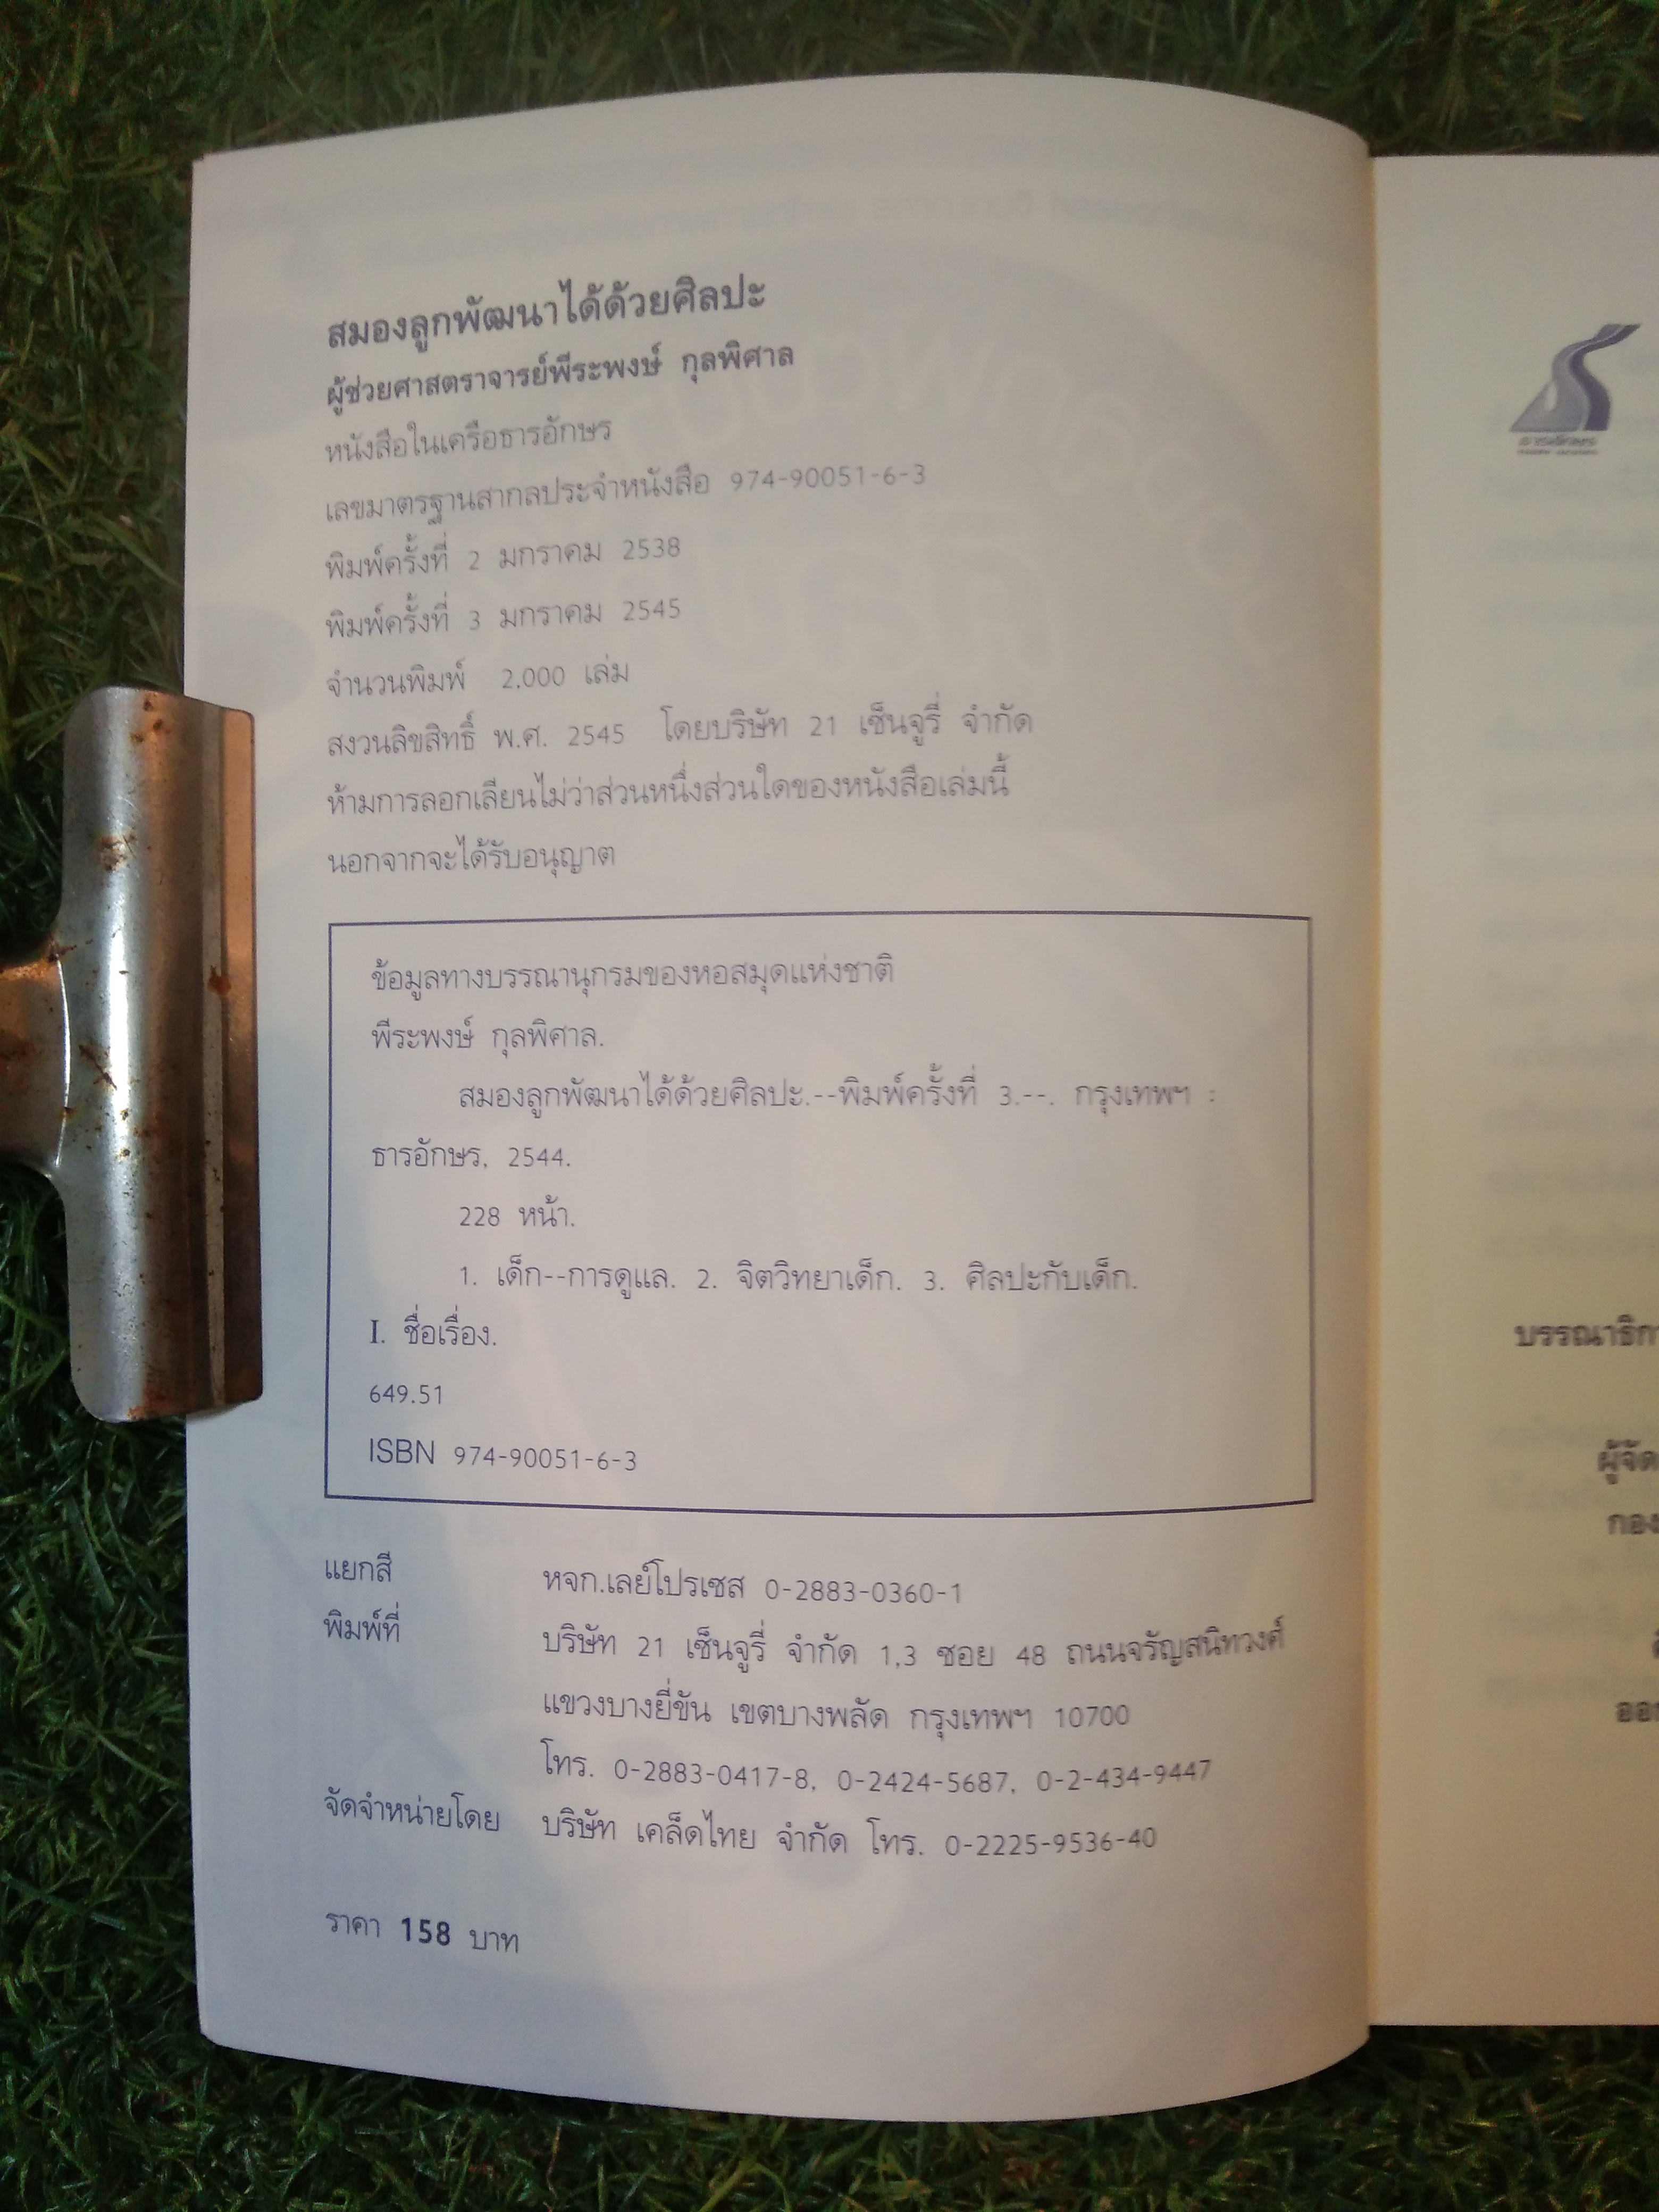 สมองลูกพัฒนาได้ด้วยศิลปะ
ผู้ช่วยศาสตราจารย์พีระพงษ์ กุลพิศาล
หนังสือในเครือธารอักษร
เลขมาตรฐานสากลประจำหนังสือ 974-90051-6-3
พิมพ์ครั้งที่ 2 มกราคม 2538
พิมพ์ครั้งที่ 3 มกราคม 2545
จำนวนพิมพ์ 2,000 เล่ม
สงวนลิขสิทธิ์ พ.ศ. 2545 โดยบริษัท 21 เซ็นจูรี่ จำกัด
ห้ามการลอกเลียนไม่ว่าส่วนหนึ่งส่วนใดของหนังสือเล่มนี้
นอกจากจะได้รับอนุญาต
ข้อมูลทางบรรณานุกรมของหอสมุดแห่งชาติ
พีระพงษ์ กุลพิศาล.
สมองลูกพัฒนาได้ด้วยศิลปะ.--พิมพ์ครั้งที่ 3.--. กรุงเทพฯ :
ธารอักษร, 2544.
228 หน้า.
1. เด็ก--การดูแล. 2. จิตวิทยาเด็ก. 3. ศิลปะกับเด็ก.
I. ชื่อเรื่อง.
649.51
ISBN 974-90051-6-3
แยกสี หจก.เลย์โปรเซส 0-2883-0360-1
พิมพ์ที่ บริษัท 21 เซ็นจูรี่ จำกัด 1,3 ซอย 48 ถนนจรัญสนิทวงศ์
แขวงบางยี่ขัน เขตบางพลัด กรุงเทพฯ 10700
โทร. 0-2883-0417-8, 0-2424-5687, 0-2-434-9447
จัดจำหน่ายโดย บริษัท เคล็ดไทย จำกัด โทร. 0-2225-9536-40
ราคา 158 บาท
ธารอักษร